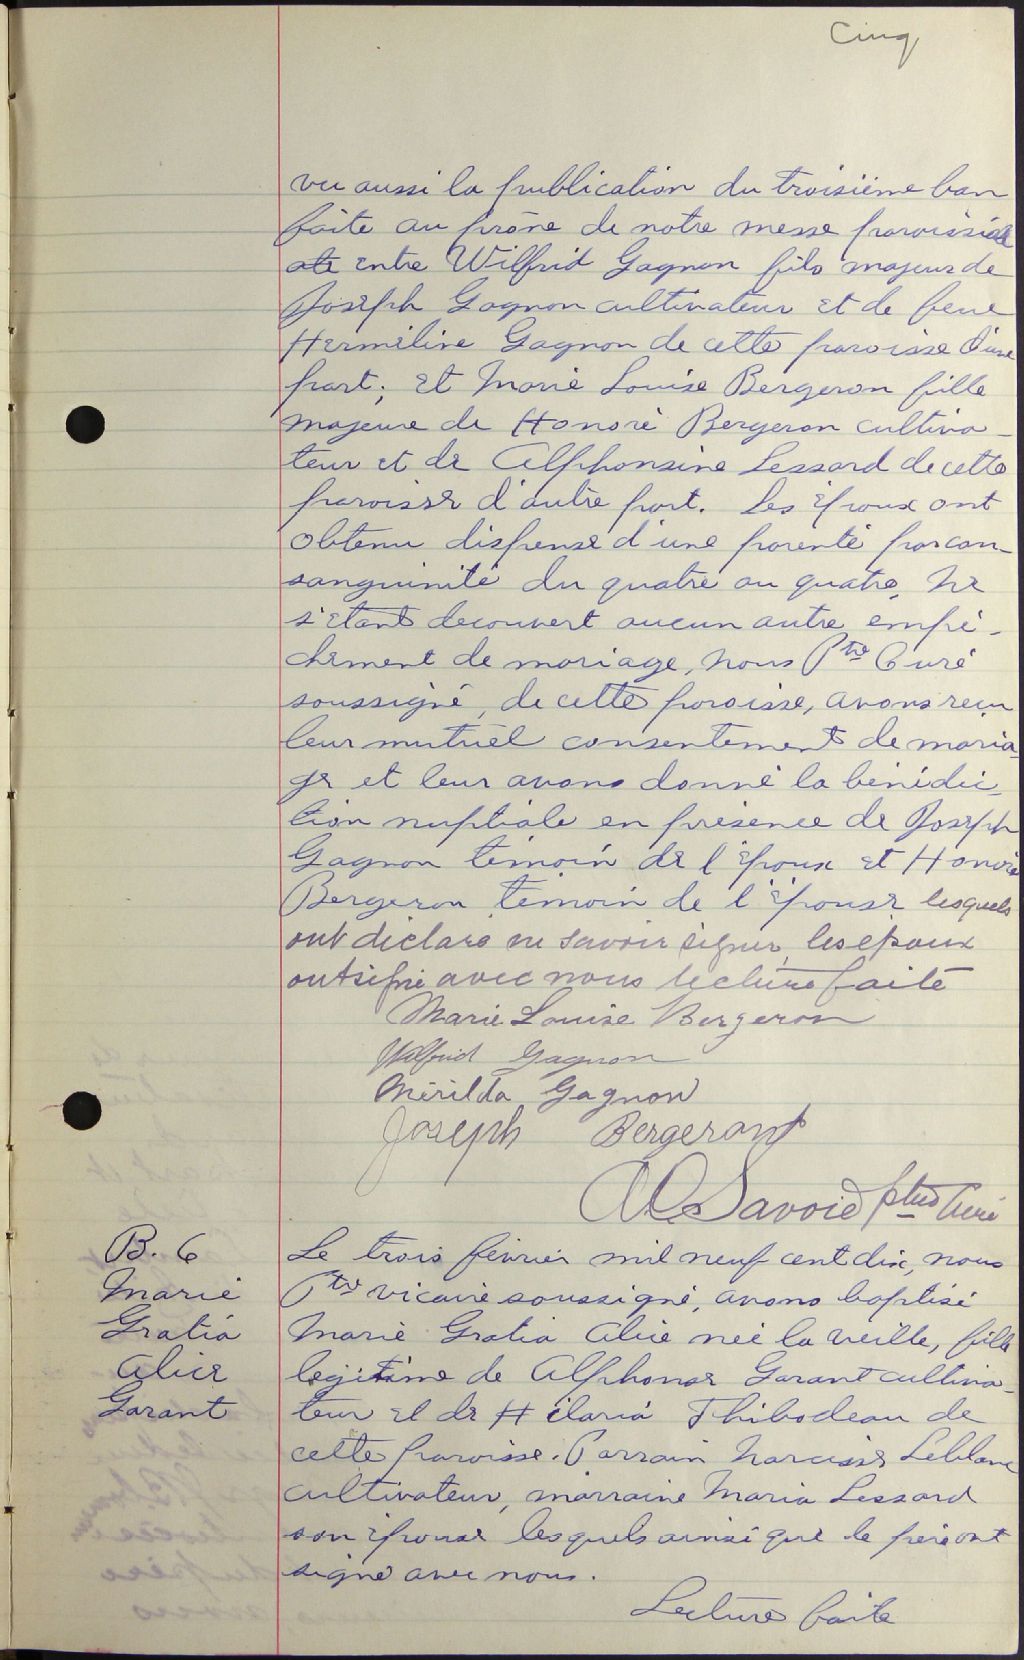 Cinq
vu aussi la publication du troisième ban
faite au prône de notre messe paroissiale
entre Wilfrid Gagnon fils majeur de
Joseph Gagnon cultivateur et de feue
Herméline Gagnon de cette paroisse d'une
part; et Marie Louise Bergeron fille
majeure de Honoré Bergeron cultiva-
teur et de Alphonsine Lessard de cette
paroisse d'autre part. Les époux ont
obtenu dispense d'une parenté par con-
sanguinité du quatre au quatre, Ne
s'étant decouvert aucun autre empé-
chement de mariage, nous Ptre Curé
soussigné, de cette paroisse, avons reçu
leur mutuel consentement de maria-
ge et leur avons donné la bénédic-
tion nuptiale en présence de Joseph
Gagnon témoin de l'époux et Honoré
Bergeron témoin de l'épouse lesquels
ont déclaré ne savoir signer, les époux
ont signé avec nous lecture faite
Marie Louise Bergeron
Wilfrid Gagnon
Mérilda Gagnon
Joseph Bergeron
Savoie ptre Curé
B. 6
Marie
Gratia
Alice
Garant
Le trois février mil neuf cent dix, nous
Ptre vicaire soussigné, avons baptisé
Marie Gratia Alice née la veille, fille
légitime de Alphonse Garant cultiva-
teur et de Hilaria Thibodeau de
cette paroisse. Parrain Narcisse Leblanc
cultivateur, marraine Maria Lessard
son épouse lesquels ainsi que le père ont
signé avec nous.
Lecture faite